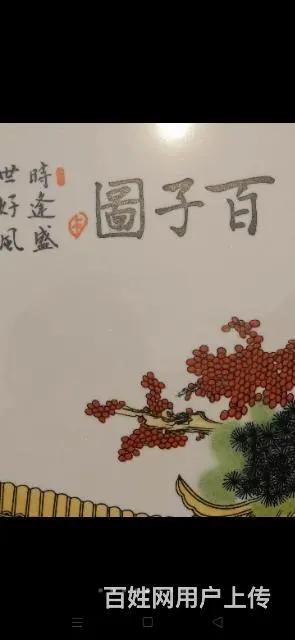 百子圖
時逢盛
世好風
百姓网用户上传